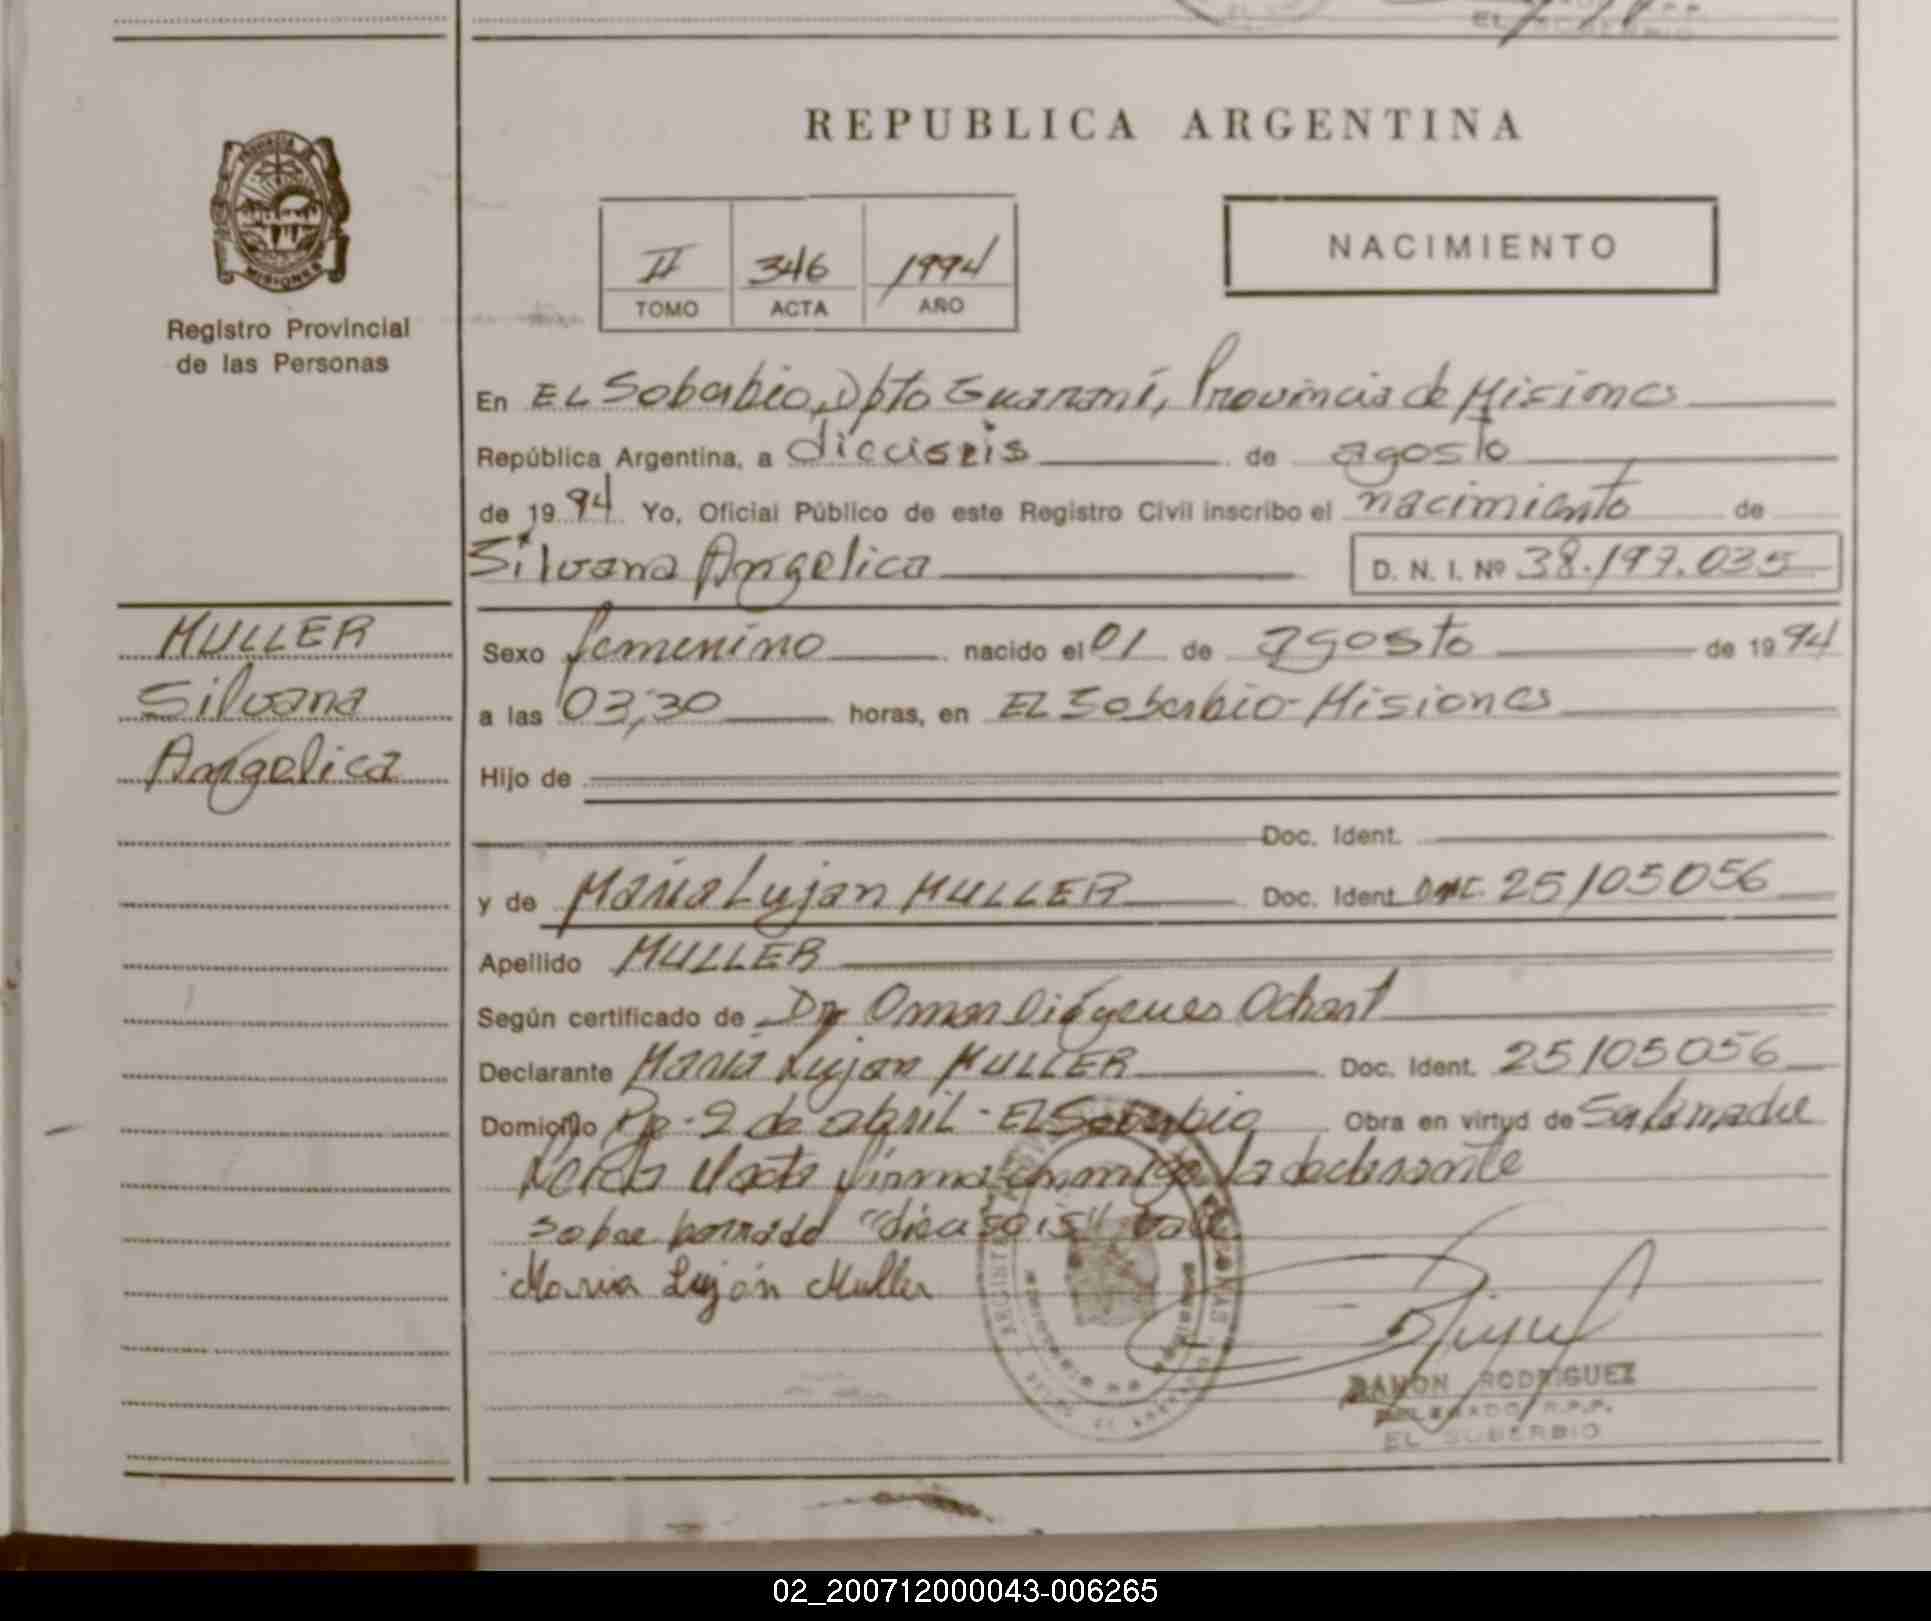 REPUBLICA ARGENTINA
PROVINCIA DE
MISIONES
Registro Provincial
de las Personas
II 346 1994
TOMO ACTA AÑO
NACIMIENTO
En EL Soberbio, Dpto Guaraní, Provincia de Misiones
República Argentina, a dieciseis de agosto
de 1994 Yo, Oficial Público de este Registro Civil inscribo el nacimiento de
Silvana Angelica D. N. I. Nº 38.197.035
MULLER
Silvana
Angelica
Sexo femenino nacido el 01 de agosto de 1994
a las 03,30 horas, en EL Soberbio-Misiones
Hijo de
Doc. Ident.
y de María Lujan MULLER Doc. Ident. 25105056
Apellido MULLER
Según certificado de Dr Omar Diógenes
Declarante María Lujan MULLER Doc. Ident. 25105056
Domicilio 2 de abril - EL Soberbio Obra en virtud de Ser la madre
acta firma conmigo la declarante
sobre borrado "dieciseis" vale
Maria Luján Muller
RAMON RODRIGUEZ
DELEGADO R.P.P.
EL SOBERBIO
02_200712000043-006265